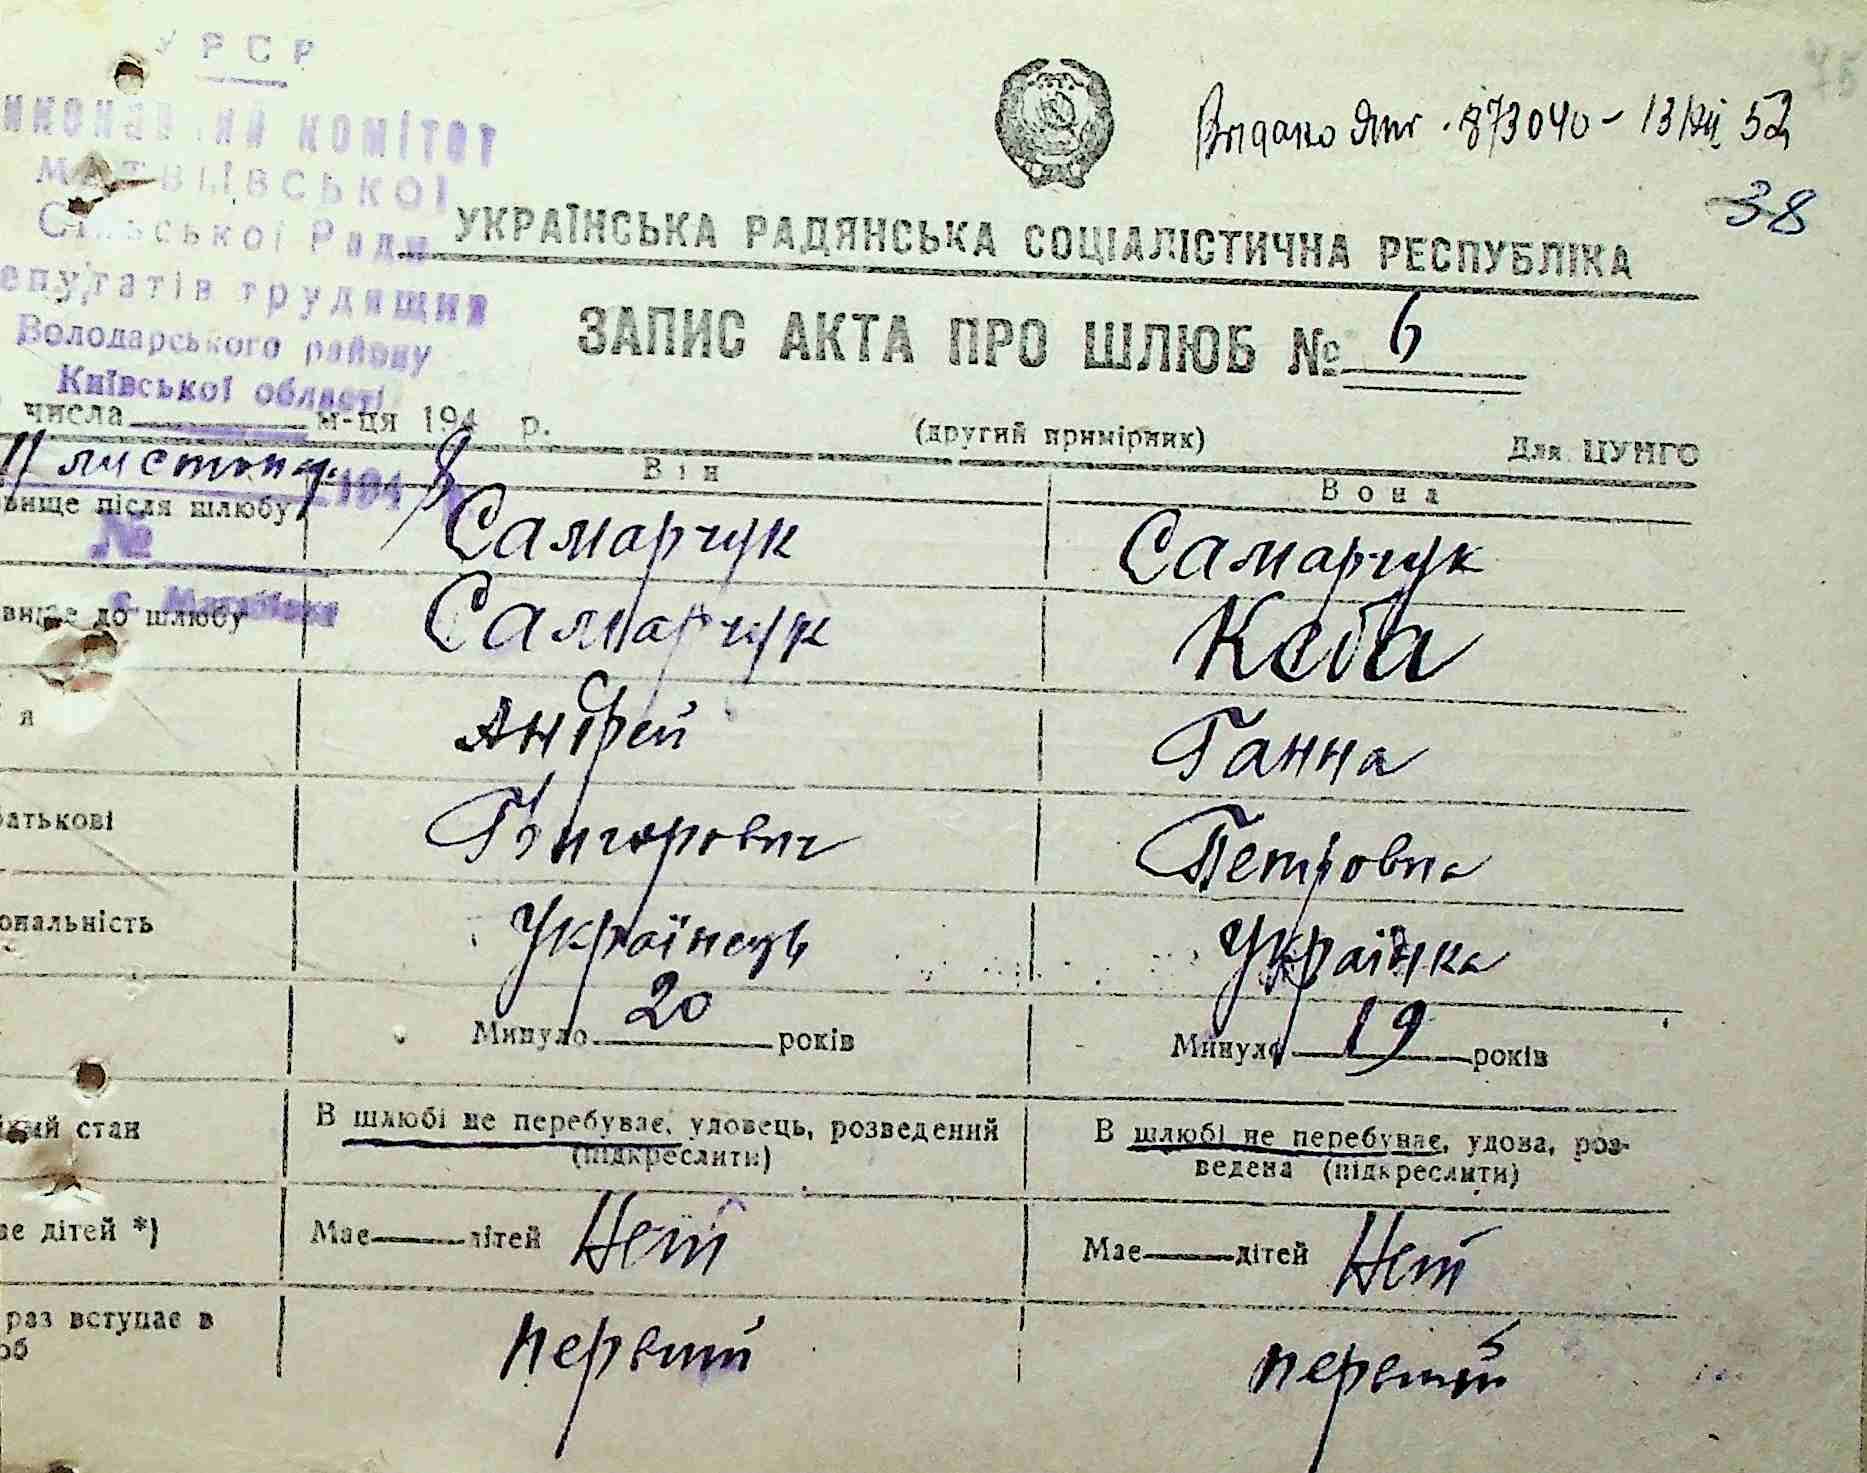 УРСР
иконавчий комітет
Матвіївської
Сільської Ради
епутатів трудящих
Володарського району
Київської області
Видано 873040 - 13/XII 52
38
УКРАЇНСЬКА РАДЯНСЬКА СОЦІАЛІСТИЧНА РЕСПУБЛІКА
ЗАПИС АКТА ПРО ШЛЮБ № 6
числа м-ця 194 р.
(другий примірник) Для ЦУНГО
11 листопад. 1948
Він Вона
вище після шлюбу Самарчук Самарчук
№
с. Матвіївка
вище до шлюбу Самарчук Кеба
я Андрей Ганна
батькові Григорович Петровна
ональність Українець Українка
Минуло 20 років Минуло 19 років
ний стан В шлюбі не перебуває, удовець, розведений (підкреслити) В шлюбі не перебуває, удова, роз-
ведена (підкреслити)
ає дітей *) Має дітей Нет Має дітей Нет
раз вступає в
юб первый первый